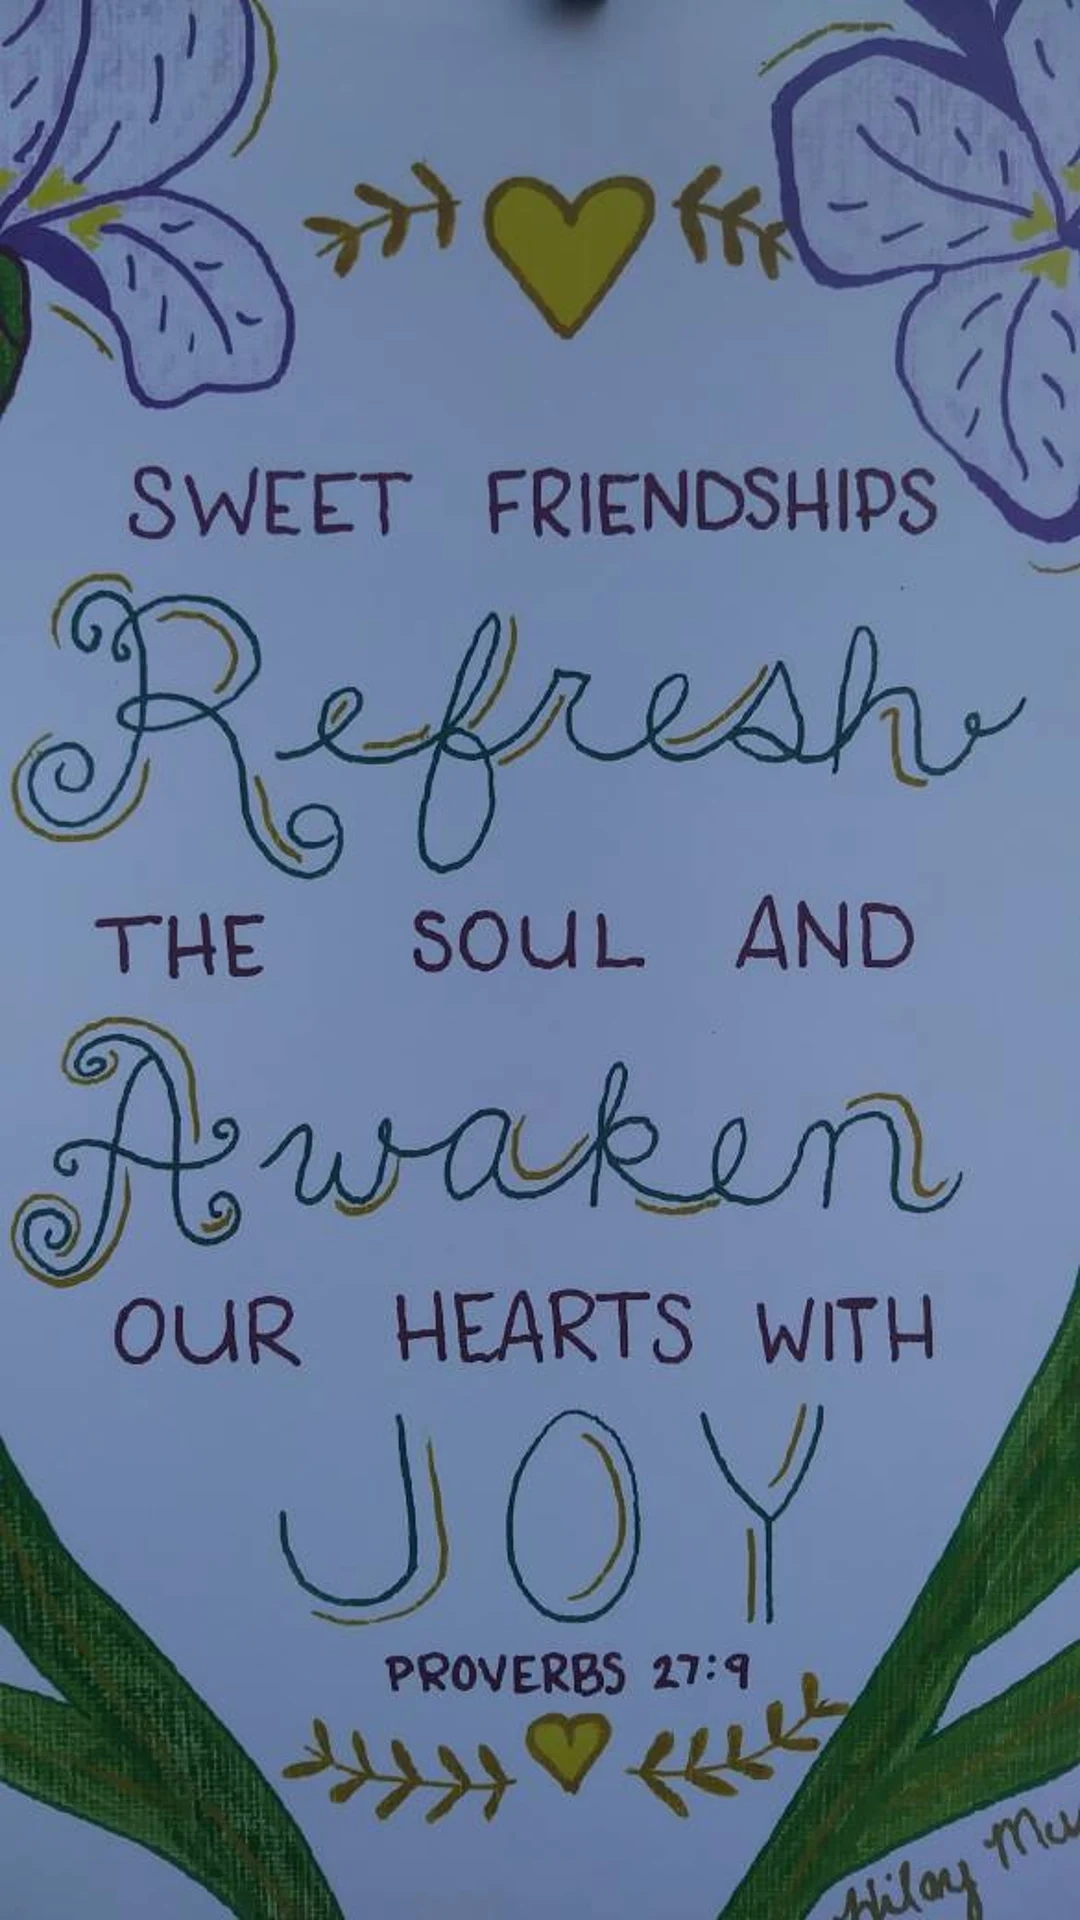 SWEET FRIENDSHIPS
Refresh
THE SOUL AND
Awaken
OUR HEARTS WITH
JOY
PROVERBS 27:9
Hilary